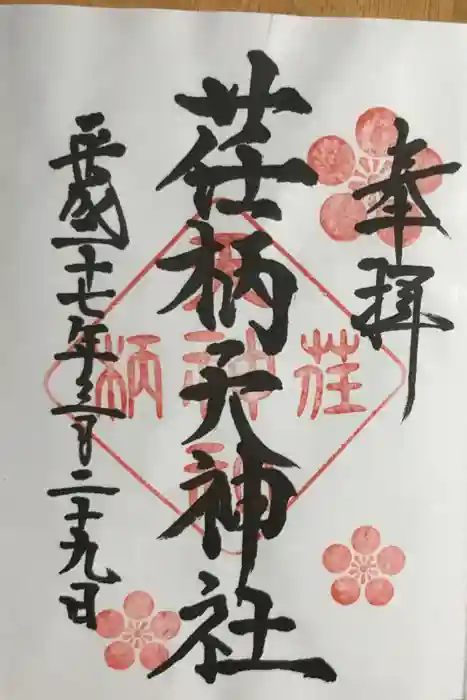 奉拝
荏柄天神社
平成二十七年三月二十九日
荏
柄
天
神
社